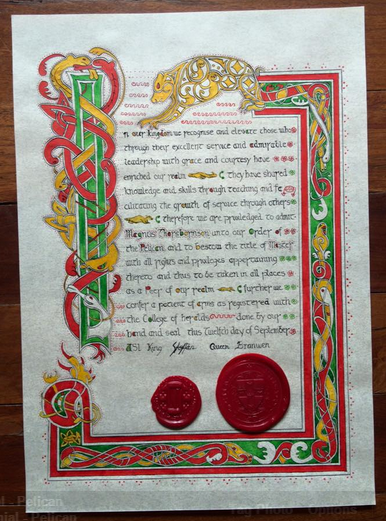 In our kingdom we recognise and elevate those who
through their excellent service and admirable
leadership with grace and courtesy have
enriched our realm they have shared
knowledge and skills through teaching and fa
cilitating the growth of service through others
therefore we are priviledged to admit
Magnus Thorbornson unto our Order of
the Pelican, and to bestow the title of Master
with all rights and privileges appertaining
thereto and thus to be taken in all places
as a Peer of our realm further we
confer a patent of arms as registered with
the College of heralds done by our
hand and seal this Twelfth day of September
ASL King Queen Branwen
Pelican
Options
- Pelican